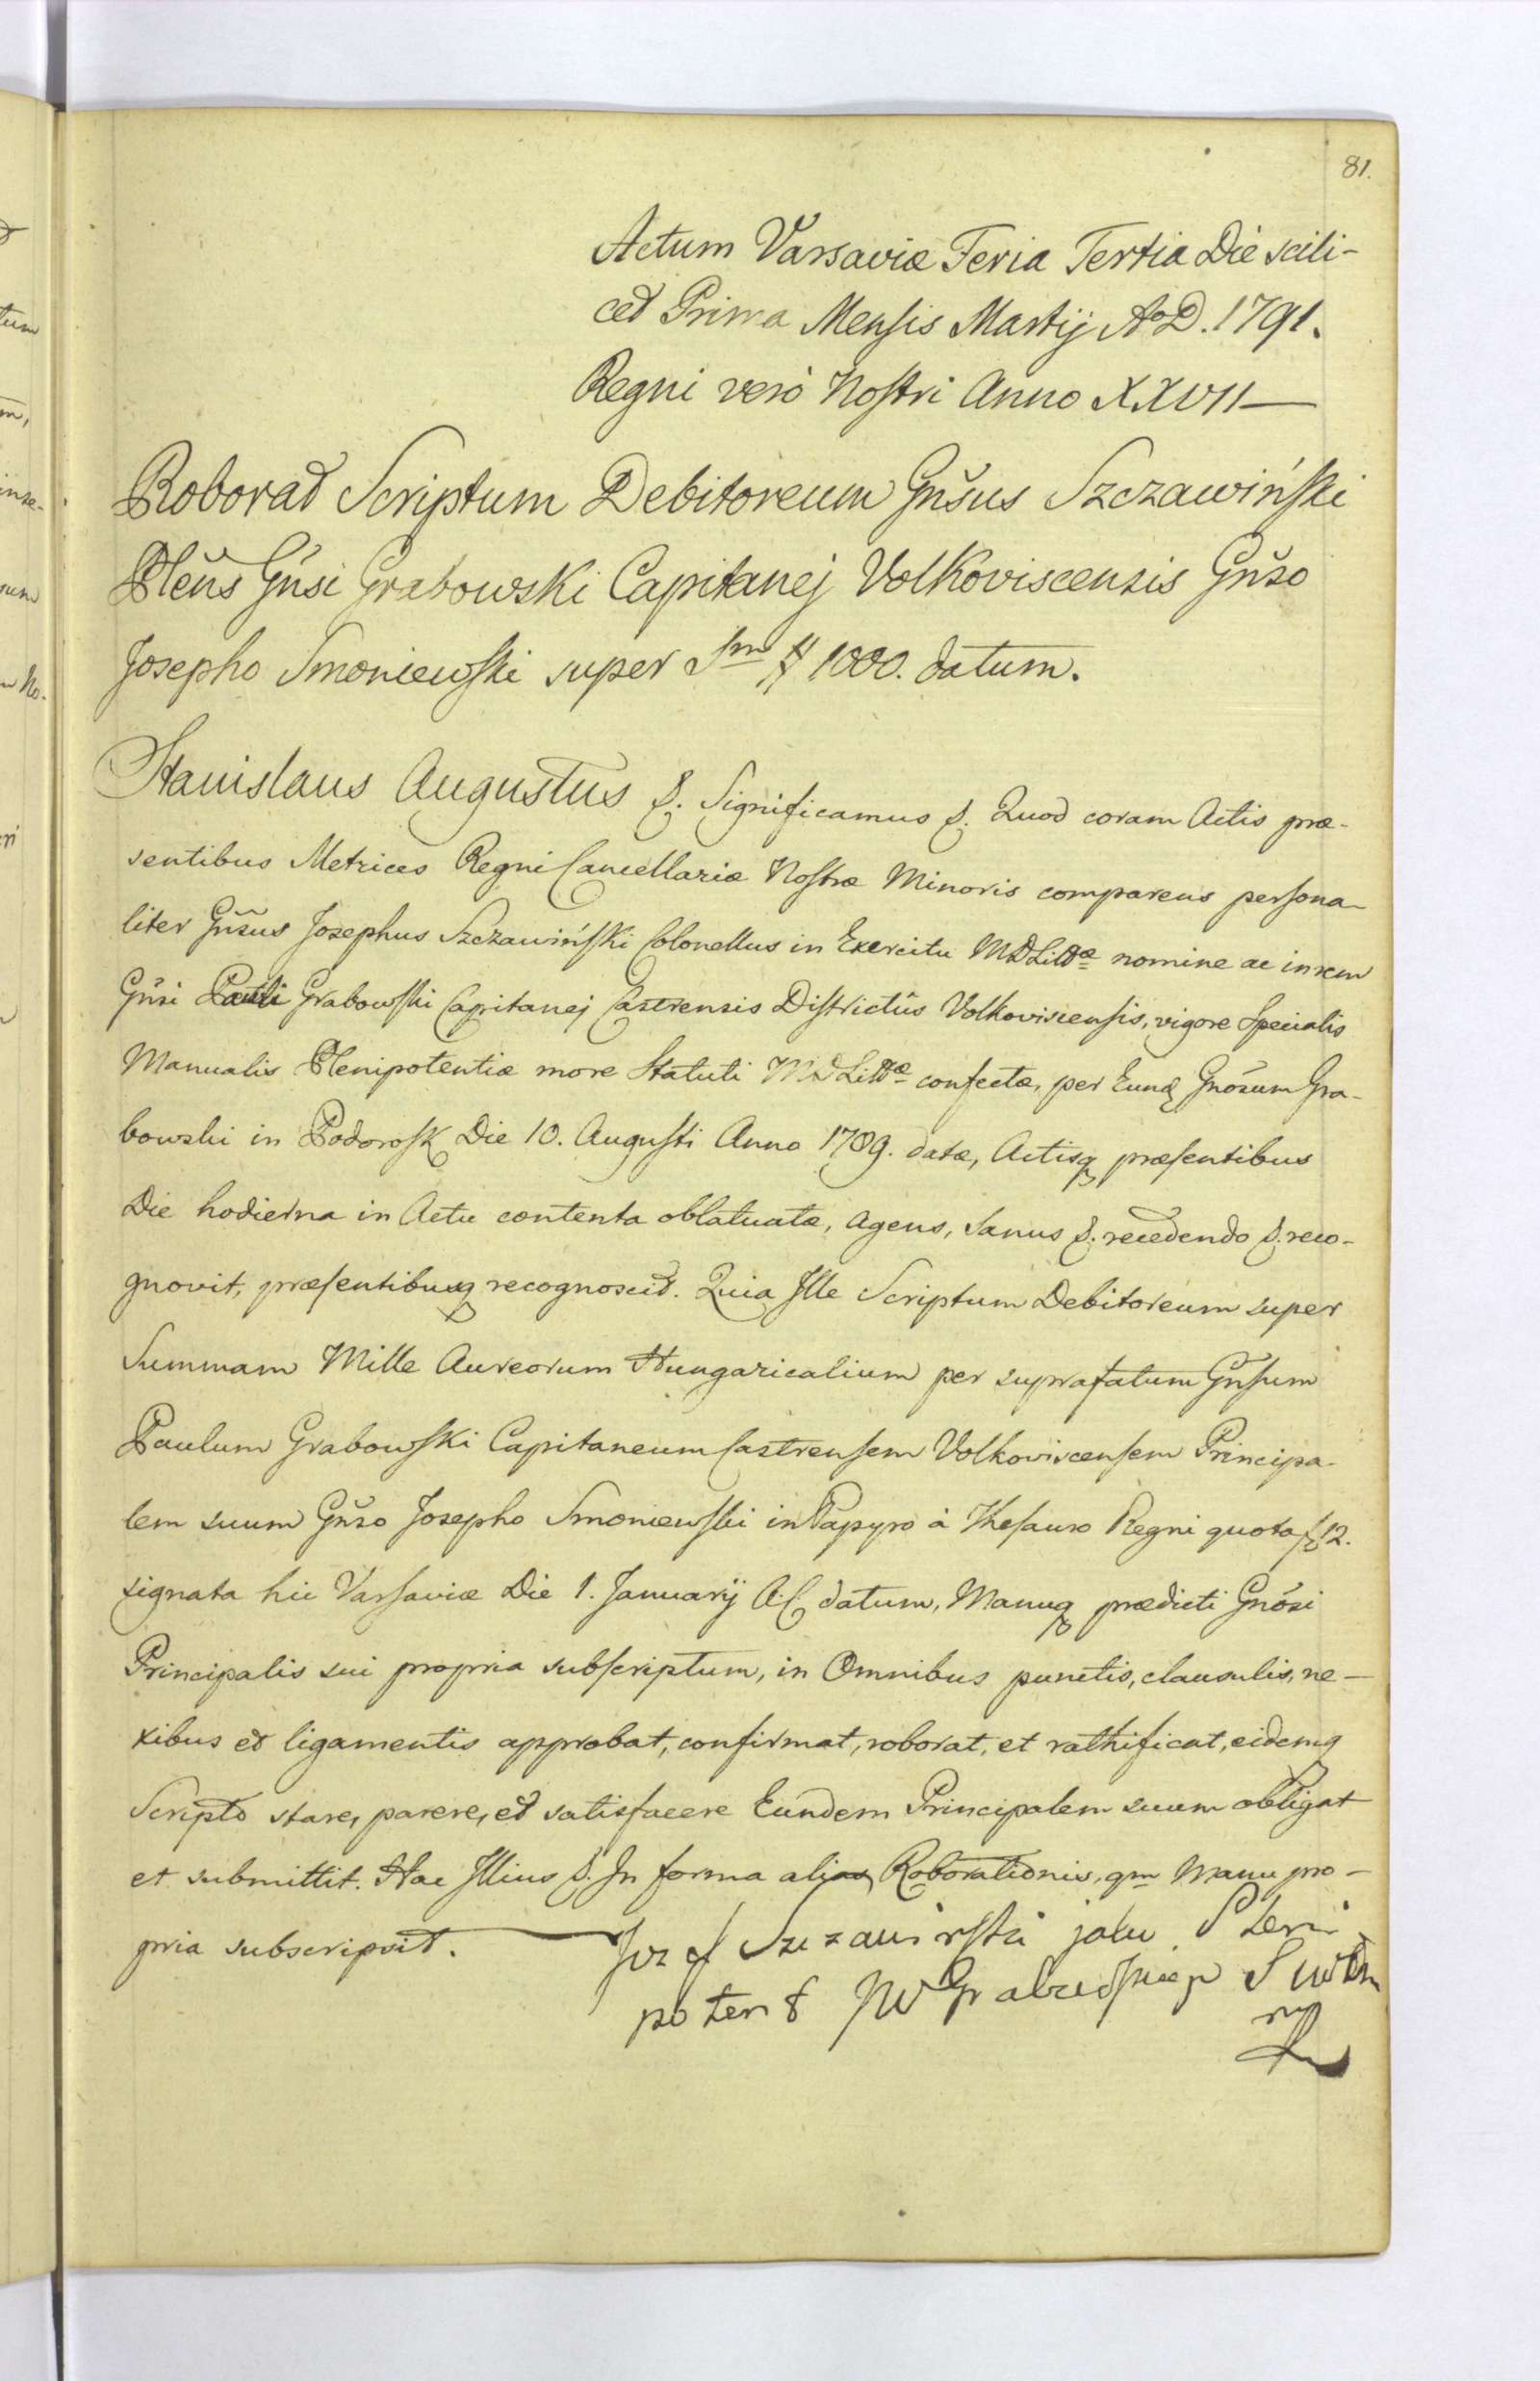 81.
Actum Varsaviæ Feria Tertia Die scili-
cet Prima Mensis Martij AoD. 1791.
Regni verò Nostri Anno XXVII—
Roborat Scriptum Debitoreum Gñsus Szczawiński
Pleñs Gñsi Grabowski Capitanej Volkoviscensis Gñso
Josepho Smoniewski super Sm # 1000. datum.
Stanislaus Augustus &. Significamus &. Quod coram Actis præ-
sentibus Metrices Regni Cancellariæ Nostræ Minoris comparens persona-
liter Gñsus Josephus Szczawiński Colonellus in Exercitu MDLittæ nomine ac in rem
Gñsi Pauli Grabowski Capitanej Castrensis Districtûs Volkoviscensis, vigore Specialis
Manualis Plenipotentiæ more Statuti MDLittæ confectæ, per Eundq Gnôsum Gra-
bowski in Podorosk Die 10. Augusti Anno 1789. datæ, Actisq præsentibus
Die hodierna in Actu contenta oblatuatæ, agens, Sanus &. recedendo &. reco-
gnovit, præsentibusq recognoscit. Quia Ille Scriptum Debitoreum super
Summam Mille Aureorum Hungaricalium per suprafatum Gñsum
Paulum Grabowski Capitaneum Castrensem Volkoviscensem Principa-
lem suum Gñso Josepho Smoniewski in Papyro à Thesauro Regni quota f 12.
signata hic Varsaviæ Die 1. Januarÿ A.C. datum, Manuq prædicti Gnôsi
Principalis sui propria subscriptum, in Omnibus punctis, clausulis, ne-
xibus et ligamentis approbat, confirmat, roborat, et rathificat, eidemq
Scripto stare, parere, et satisfacere Eundem Principalem suum obligat
et submittit. Hac Illius &. In forma alias Roborationis, qm Manu pro-
pria subscripsit. — Jozef Szczawinski jako Pleni
potent JW Grabowskiego